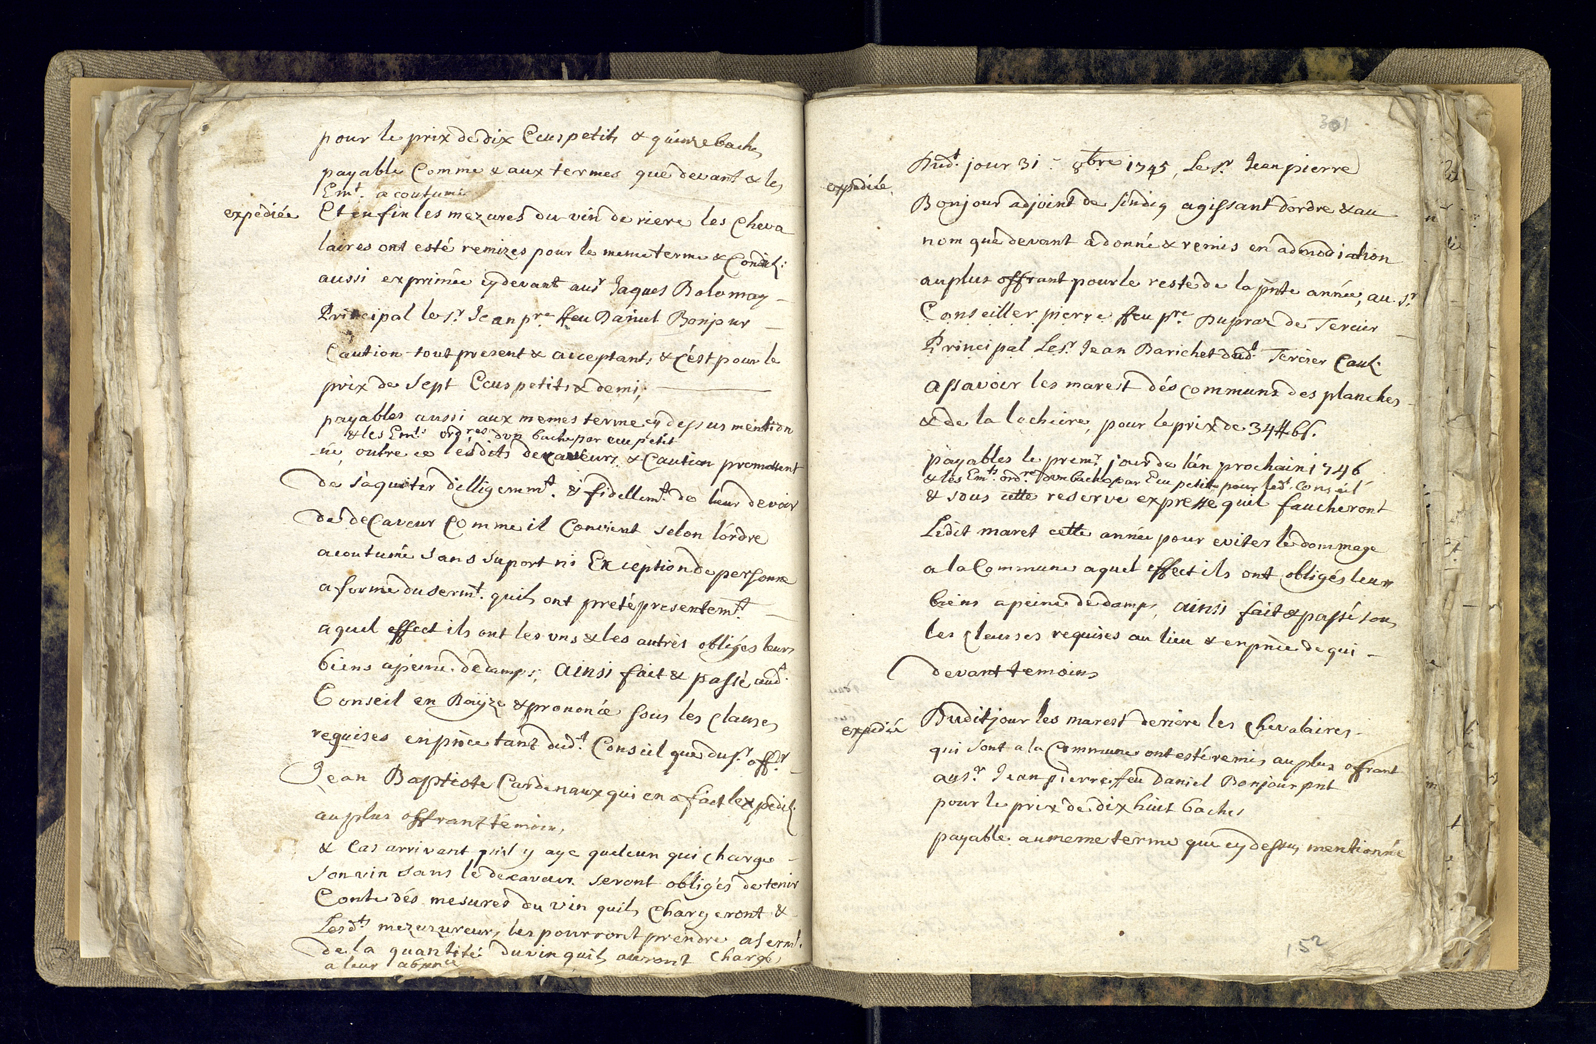 pour le prix de dix Ecus petits & quinze baches
payable Comme & aux termes que devant & les
Emt. acoutumé
expediée
Et enfin les mezures du vin de riere les cheva
laires ont esté remizes pour le meme terme & Condit:
aussi exprimée cy devant au sr Jaques Bolomay
Principal le sr. Jean pre. ffeu Daniel Bonjour
Caution tout present & acceptant, & c'est pour le
prix de Sept Ecus petits & demi,
payables aussi aux memes terme cy dessus mention
& les Emts. ordres dun bache par ecu petit
né, outre ce lesdits decaveurs, & Caution promettent
de s'aquiter dilligemmt. & fidellemt. de leur devoir
de decaveur Comme il Convient selon l'ordre
acoutumé sans suport ni Exception de personne
a forme du sermt. quils ont preté presentemt.
aquel effect ils ont les uns & les autres obligés leurs
biens apeine de damps; ainsi fait & passé aud.
Conseil en & prononcée sous les clauses
requises enpnce tant dudt. Conseil que du sr. offr
Jean Baptiste Cardenaux qui en a fait l'expedit
au plus offrant témoins,
& Cas arrivant quil y aye quelcun qui charge
son vin sans le decaveur seront obligés de tenir
Conte dés mesures du vin quils chargeront &
Lesdts mezureurs les pourront prendre a sermt.
de la quantité du vin quils auront chargé
a leur absence
301
Dudt. jour 31 - 8bre 1745 Le sr. Jean pierre
expediée
Bonjour adjoint de Sindiq agissant d'ordre & au
nom que devant a donné & remis en admodiation
au plus offrant pour le reste de la pnte année, au sr.
Conseiller pierre ffeu pre. Dupraz de Tercier
Principal Le sr. Jean Barichet dudt. Tercier Caut.
assavoir les marest dés communs des planches
& de la lechiere, pour le prix de 34 ff 6 s.
payables le premr. jour de l'an prochain 1746
& les Emts. ordre dun bache par Ecu petit pour ledt. Conseil
& sous cette reserve expresse quil faucheront
Ledit maret cette année pour eviter le dommage
a la Commune aquel effect ils ont obligés leurs
biens apeine de damps, ainsi fait & passé sous
les clauses requises au lieu & enpnce de qui
devant temoins
expediée
Dudit jour les marest deriere les Chevalaires
qui sont a la Commune ont esté remis au plus offrant
au sr. Jean pierre ffeu Daniel Bonjour pnt
pour le prix de dix huit baches
payable au meme terme que cy dessus mentionnée
152